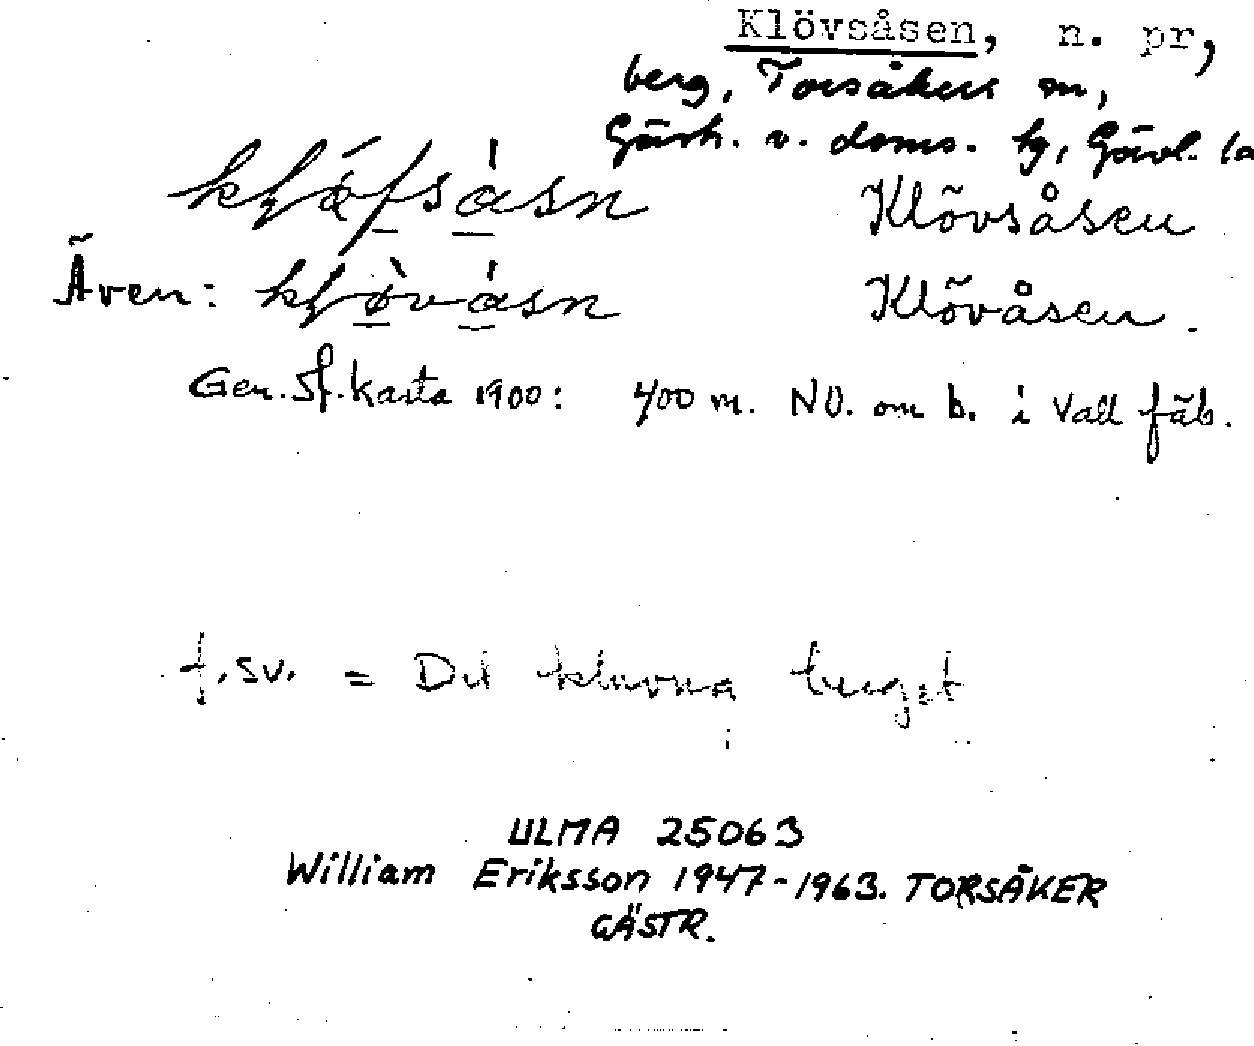 Klövsåsen, n. pr,
berg, Torsåkers sn,
Gästr. v. doms. tg, Gävl. la
Klövsåsen
Även: Klövåsen.
Gen. St. karta 1900: 400 m. NO. om b. i Vall fäb.
f.sv. = Det kluvna berget
ULMA 25063
William Eriksson 1947-1963. TORSÅKER
GÄSTR.